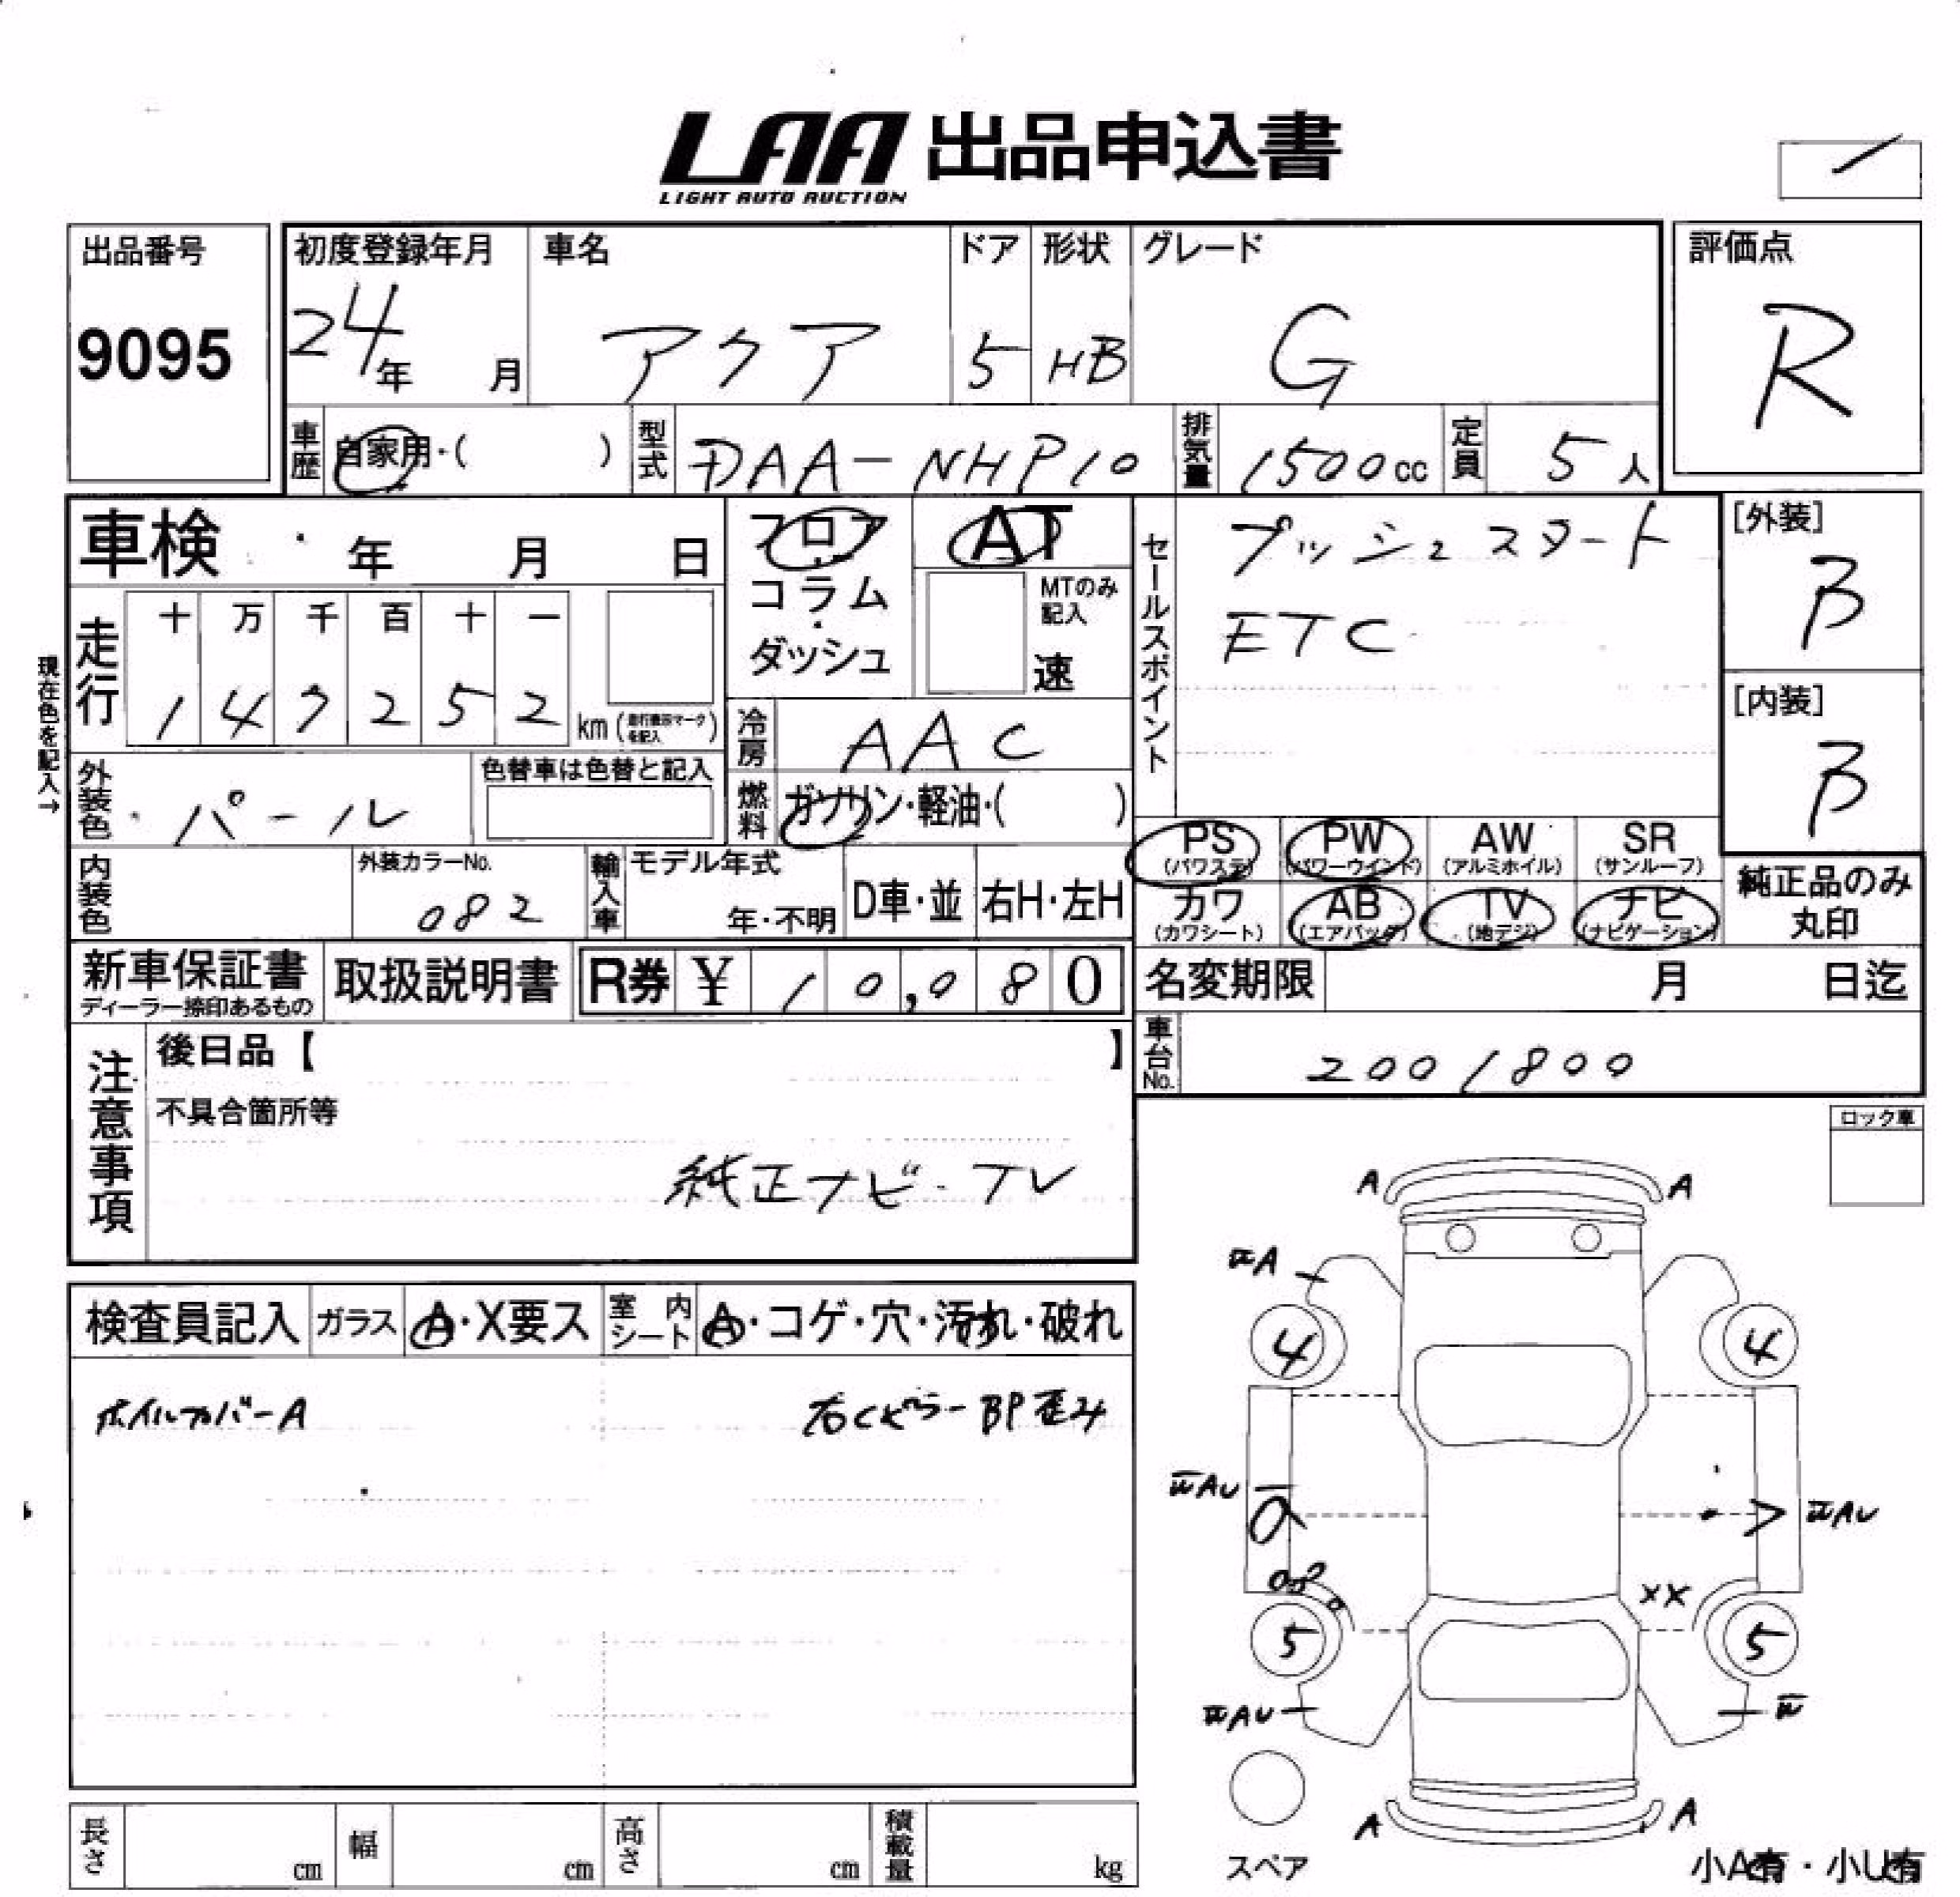 LAA 出品申込書
LIGHT AUTO AUCTION
出品番号
9095
初度登録年月
24年 月
車名
アクア
ドア
5
形状
HB
グレード
G
評価点
R
車歴 自家用・( )
型式 DAA-NHP10
排気量 1500cc
定員 5人
車検 年 月 日
フロア
コラム
ダッシュ
AT
MTのみ記入
速
セールスポイント
プッシュスタート
ETC
[外装]
B
[内装]
B
現在色を記入→
走行
十 万 千 百 十 一
1 4 9 2 5 2 km (走行表示マークを記入)
冷房 AAC
外装色 パール
色替車は色替と記入
燃料 ガソリン・軽油・( )
PS (パワステ)
PW (パワーウインド)
AW (アルミホイル)
SR (サンルーフ)
カワ (カワシート)
AB (エアバッグ)
TV (地デジ)
ナビ (ナビゲーション)
純正品のみ丸印
内装色
外装カラーNo.
082
輸入車
モデル年式
年・不明
D車・並
右H・左H
新車保証書
ディーラー捺印あるもの
取扱説明書
R券 ¥ 10,080
名変期限 月 日迄
車台No. 2001800
注意事項
後日品【 】
不具合箇所等
純正ナビ・TV
ロック車
検査員記入
ガラス A・X要ス
室内シート A・コゲ・穴・汚れ・破れ
ホイルカバーA
右Cピラー BP歪み
A A
WA
4 4
WAU
WAU
XX
5 5
WAU
W
A A
スペア
小A有・小U有
長さ cm
幅 cm
高さ cm
積載量 kg